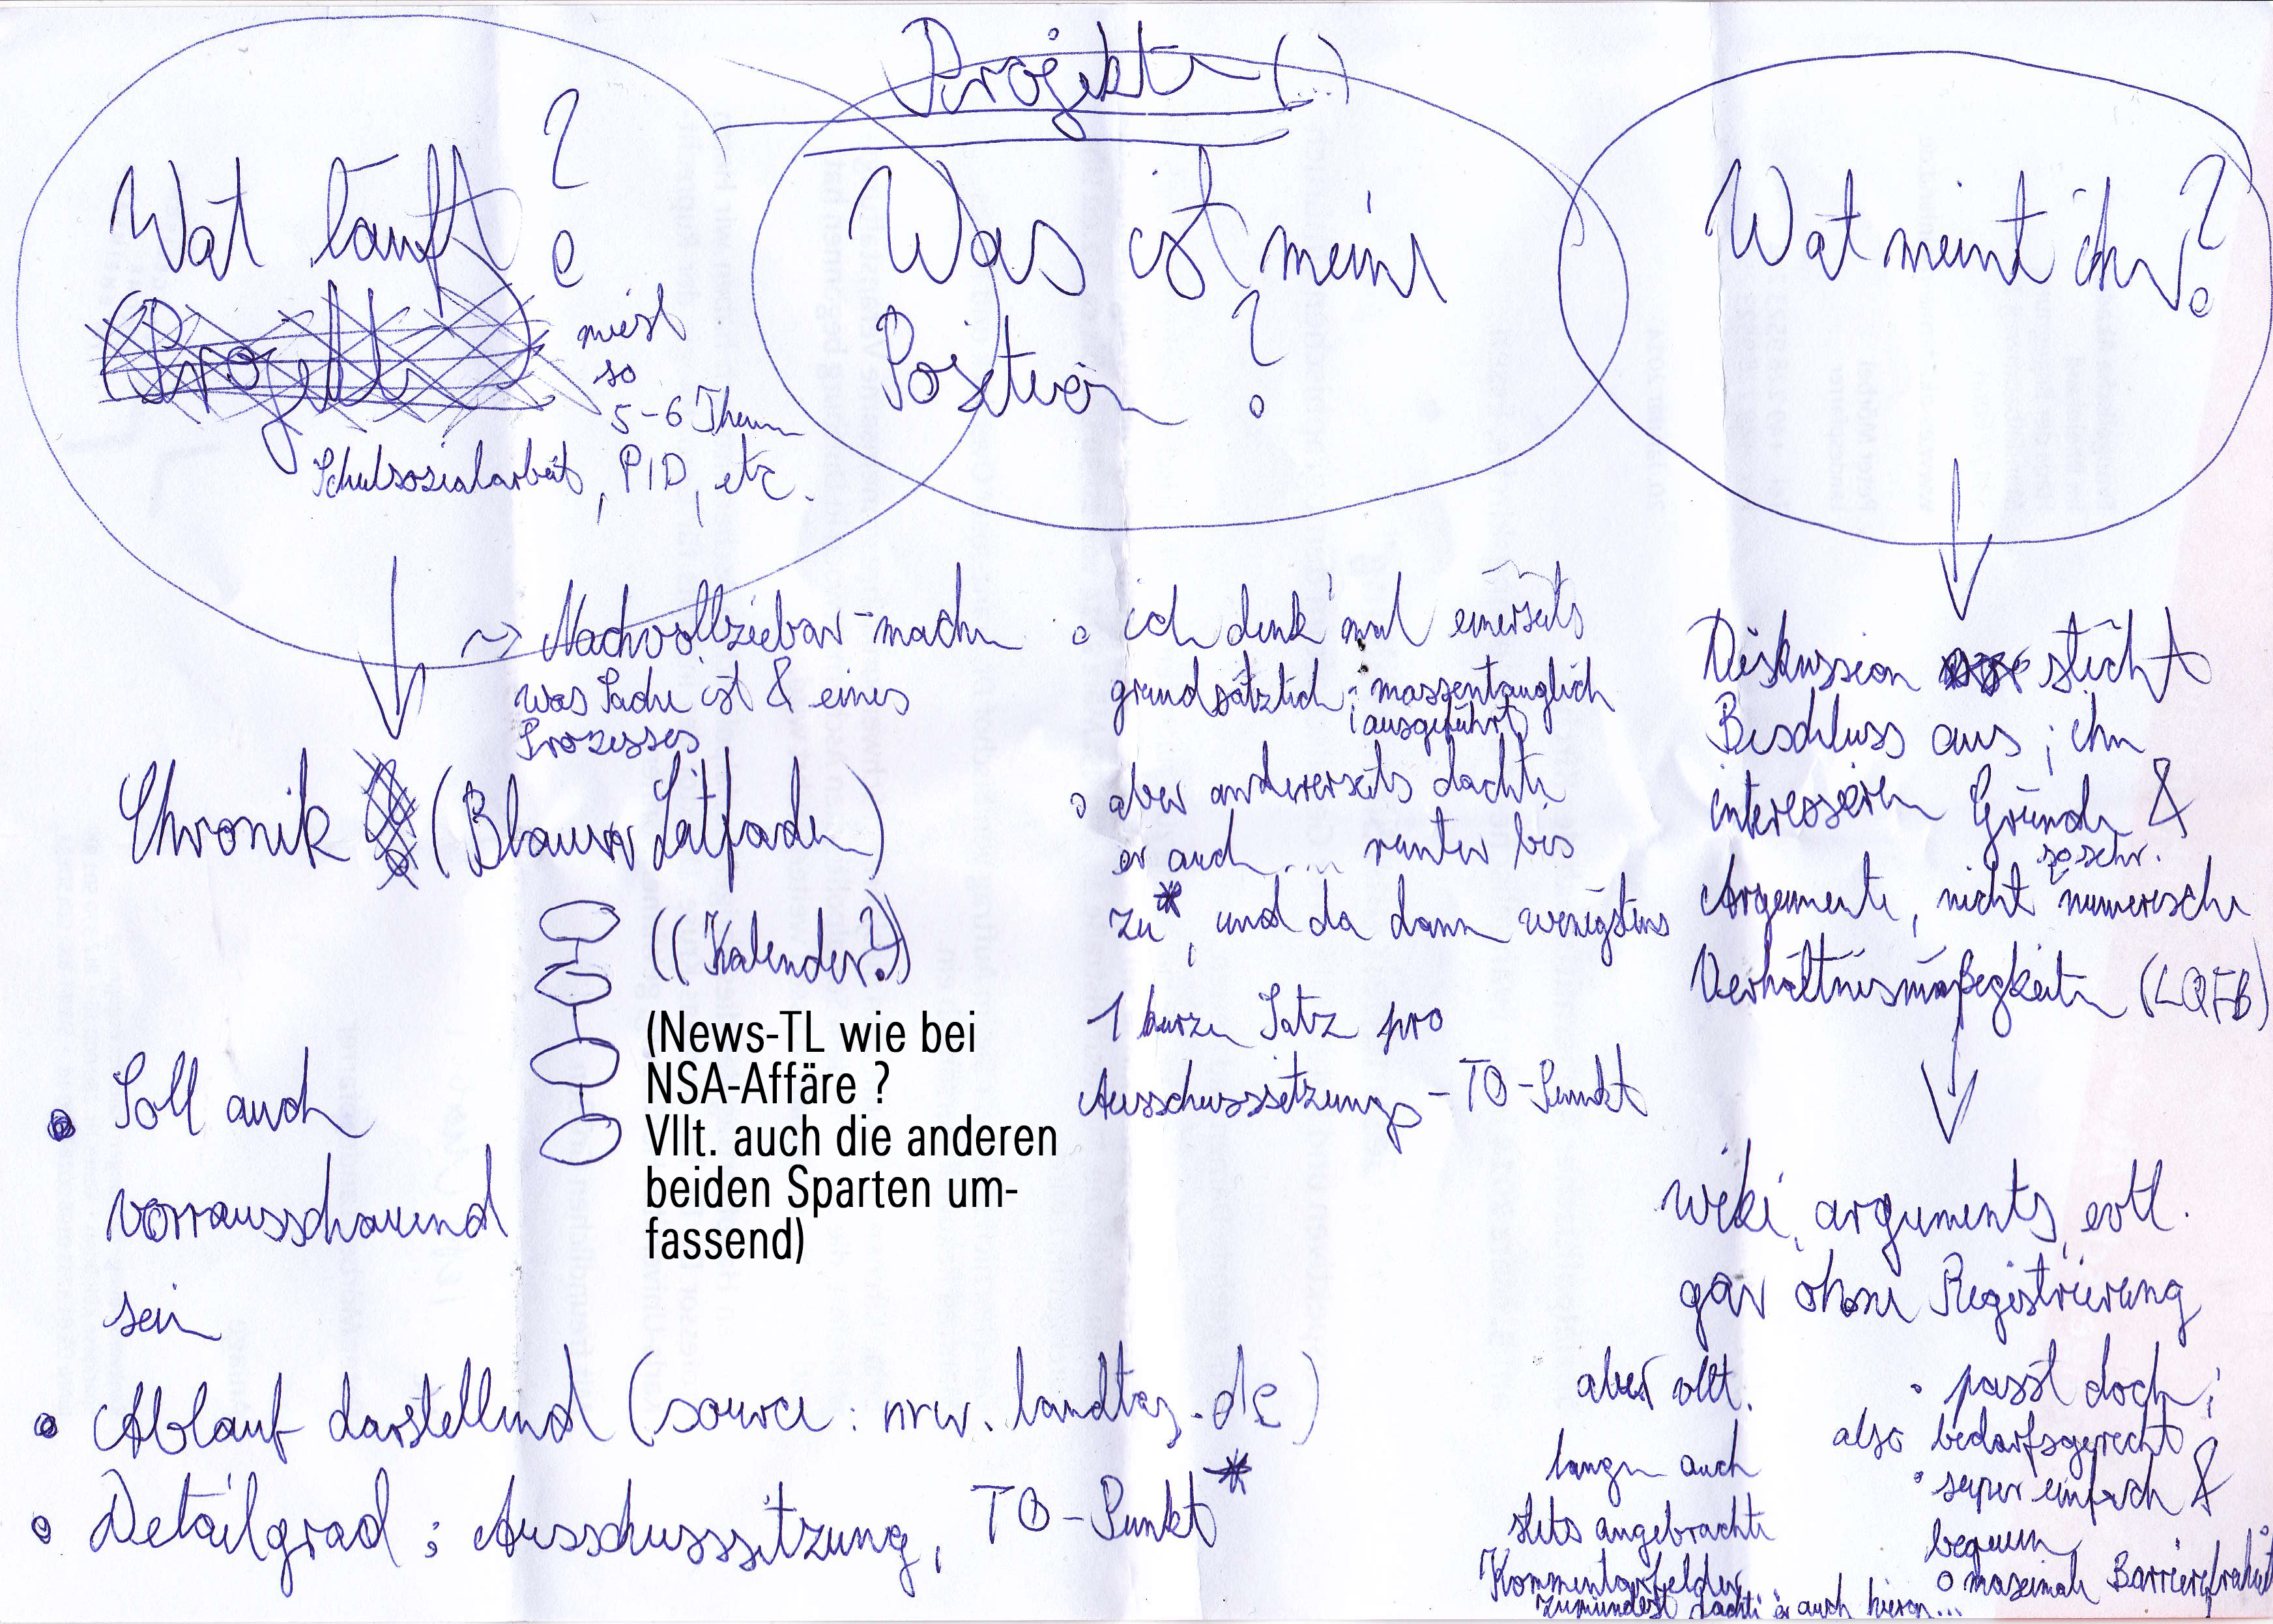 Projekte (...)
Wat läuft?
(Projekte)
miest
so
5-6 Themen
Schulsozialarbeit, PID, etc.
Was ist meine
Position?
Wat meint ihr?
~> Nachvollziebar-machen
was Sache ist & eines
Prozesses
Chronik (Blauer Leitfaden)
((Kalender?))
(News-TL wie bei
NSA-Affäre ?
Vllt. auch die anderen
beiden Sparten um-
fassend)
• Soll auch
vorrausschauend
sein
• Ablauf darstellend (source: nrw.landtag.de)
• Detailgrad: Ausschusssitzung, TO-Punkt*
• ich denk' mal einerseits
grundsätzlich; massentauglich
ausgeführt
• aber andererseits dachte
er auch ... runter bis
zu*, und da dann wenigstens
1 kurzen Satz pro
Ausschusssitzungs-TO-Punkt
Diskussion sticht
Beschluss aus; ihn
interessieren Gründe &
Argumente, nicht so sehr numerische
Verhältnismäßigkeiten (LQFB)
wiki, arguments, evtl.
gar ohne Registrierung
aber vllt.
langen auch
stets angebrachte
Kommentarfelder
zumindest dachte er auch hieran...
• passt doch;
also bedarfsgerecht
• super einfach &
bequem
• maximale Barrierefreiheit